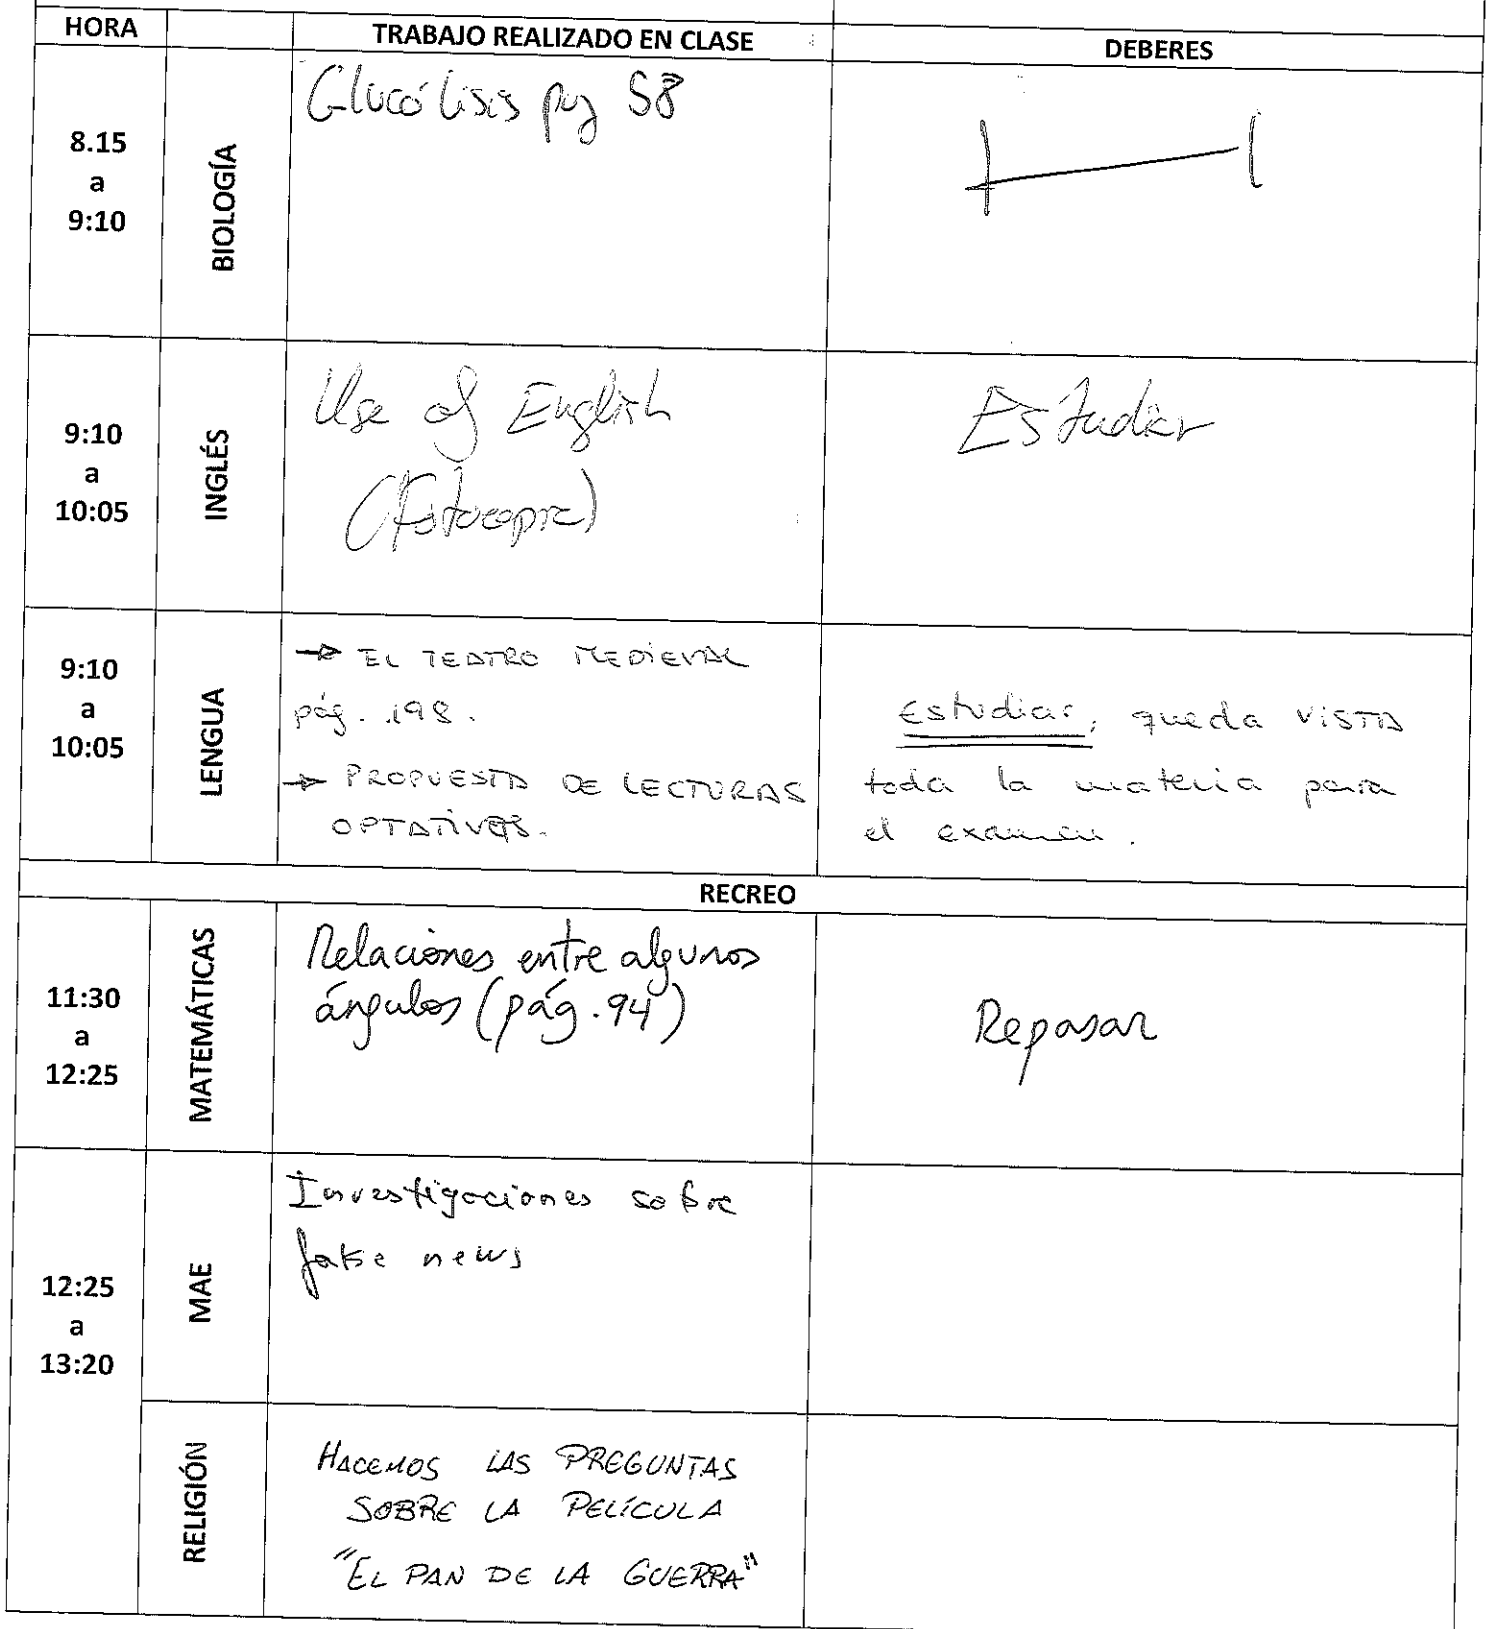 HORA TRABAJO REALIZADO EN CLASE DEBERES
8.15
a
9:10
BIOLOGÍA
Glucólisis pag 58
9:10
a
10:05
INGLÉS
Use of English
(Fotocopia)
Estudiar
9:10
a
10:05
LENGUA
→ EL TEATRO MEDIEVAL
pág. 198.
→ PROPUESTA DE LECTURAS
OPTATIVAS.
Estudiar, queda VISTA
toda la materia para
el examen.
RECREO
11:30
a
12:25
MATEMÁTICAS
Relaciones entre algunos
ángulos (pág. 94)
Repasar
12:25
a
13:20
MAE
Investigaciones sobre
fake news
RELIGIÓN
HACEMOS LAS PREGUNTAS
SOBRE LA PELÍCULA
"EL PAN DE LA GUERRA"